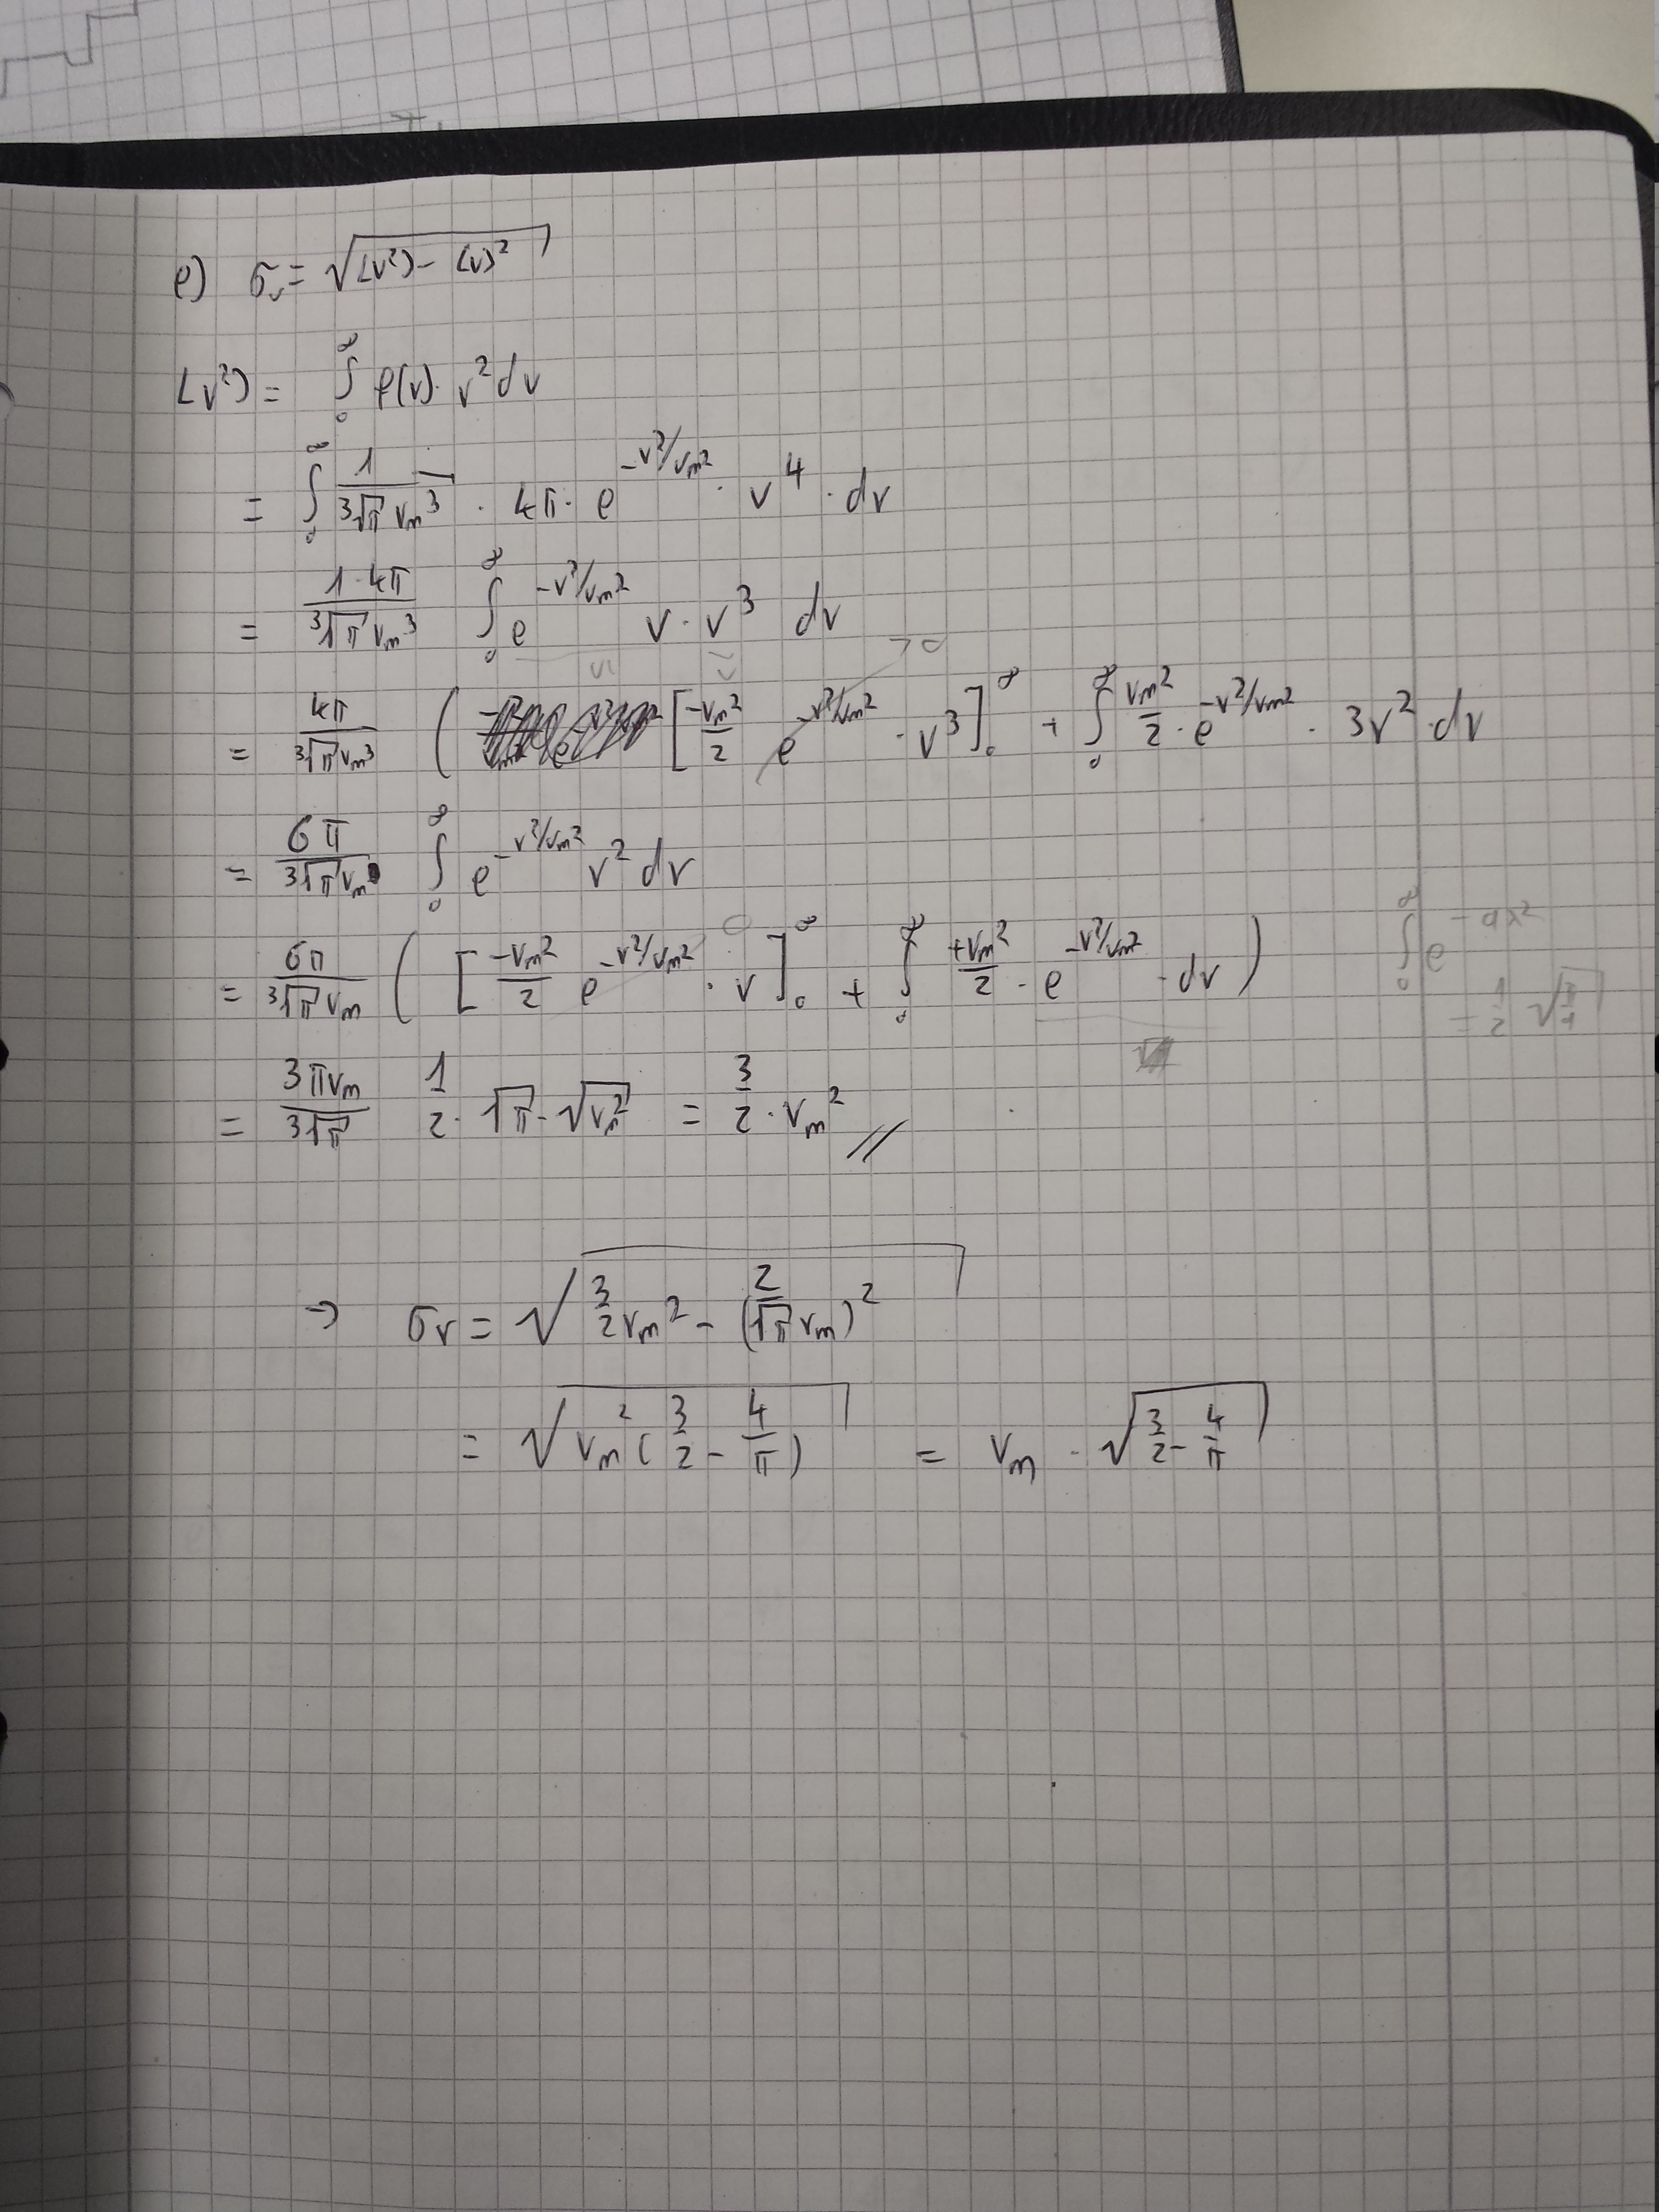 e) σᵥ = √(⟨v²⟩ - ⟨v⟩²)
⟨v²⟩ = ∫₀^∞ ρ(v) · v² dv
= ∫₀^∞ 1/(³√π vₘ³) · 4π · e^(-v²/vₘ²) · v⁴ · dv
= (1·4π)/(³√π vₘ³) ∫₀^∞ e^(-v²/vₘ²) v · v³ dv
= 4π/(³√π vₘ³) ( [ -vₘ²/2 e^(-v²/vₘ²) · v³ ]₀^∞ + ∫₀^∞ vₘ²/2 · e^(-v²/vₘ²) · 3v² · dv
→ 0
= 6π/(³√π vₘ) ∫₀^∞ e^(-v²/vₘ²) v² dv
= 6π/(³√π vₘ) ( [ -vₘ²/2 e^(-v²/vₘ²) · v ]₀^∞ + ∫₀^∞ +vₘ²/2 · e^(-v²/vₘ²) · dv )
0
∫₀^∞ e^(-ax²)
= 1/2 √(π/a)
= 3πvₘ/³√π 1/2 · √π · √(vₘ²) = 3/2 · vₘ² //
→ σᵥ = √(3/2 vₘ² - (2/√π vₘ)²)
= √(vₘ² (3/2 - 4/π)) = vₘ · √(3/2 - 4/π)